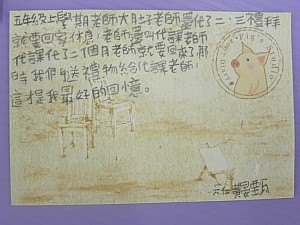 五年級上學期老師大肚子老師還化了二、三禮拜
就要回家休息,老師還叫代課老師
代課化了二個月老師就要回來了那
時我們送禮物給代課老師,
這是我最好的回憶。
Pig's Studio
六仁